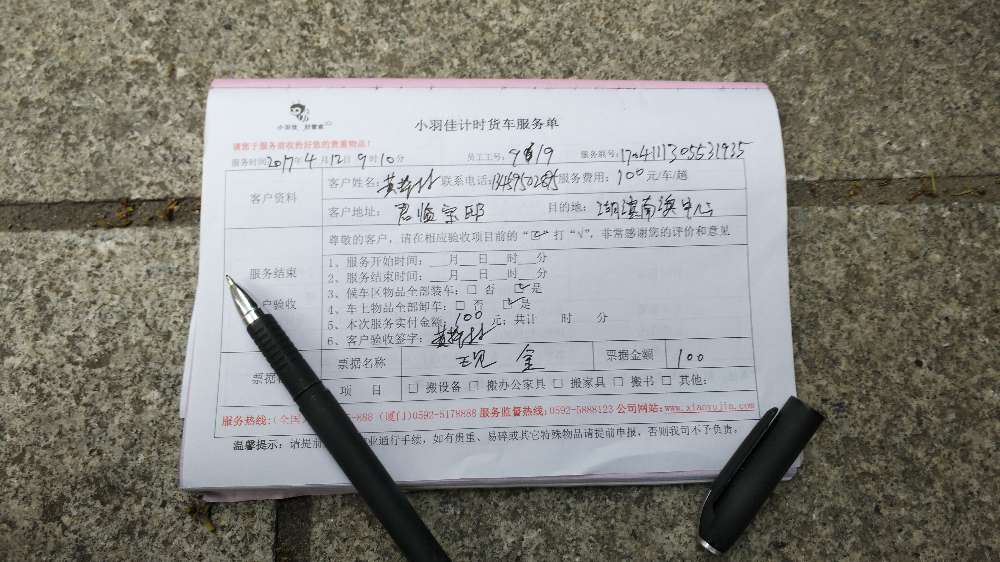 小羽佳 好管家
小羽佳计时货车服务单
请您于服务前收拾好您的贵重物品!
服务时间2017年4月12日9时10分 员工工号: 9 19 服务联号: 170411305531935
客户资料 客户姓名: 联系电话: 服务费用: 100元/车/趟
客户地址: 君临宗邸 目的地: 湖滨南
尊敬的客户,请在相应验收项目前的“☑”打“√”,非常感谢您的评价和意见
服务结束
户验收
1、服务开始时间:___月__日__时__分
2、服务结束时间:___月__日__时__分
3、候车区物品全部装车:□ 否 ☑是
4、车上物品全部卸车:□ 否 ☑是
5、本次服务实付金额:100元;共计 时 分
6、客户验收签字:
票据 票据名称 现金 票据金额 100
项 目 □ 搬设备 □ 搬办公家具 □ 搬家具 □ 搬书 □ 其他:
服务热线:(全国 -888 (厦门)0592-5178888 服务监督热线:0592-5888123 公司网站:www.xiaoyujia.com
温馨提示:请提前 业通行手续,如有贵重、易碎或其它特殊物品请提前申报,否则我司不予负责。